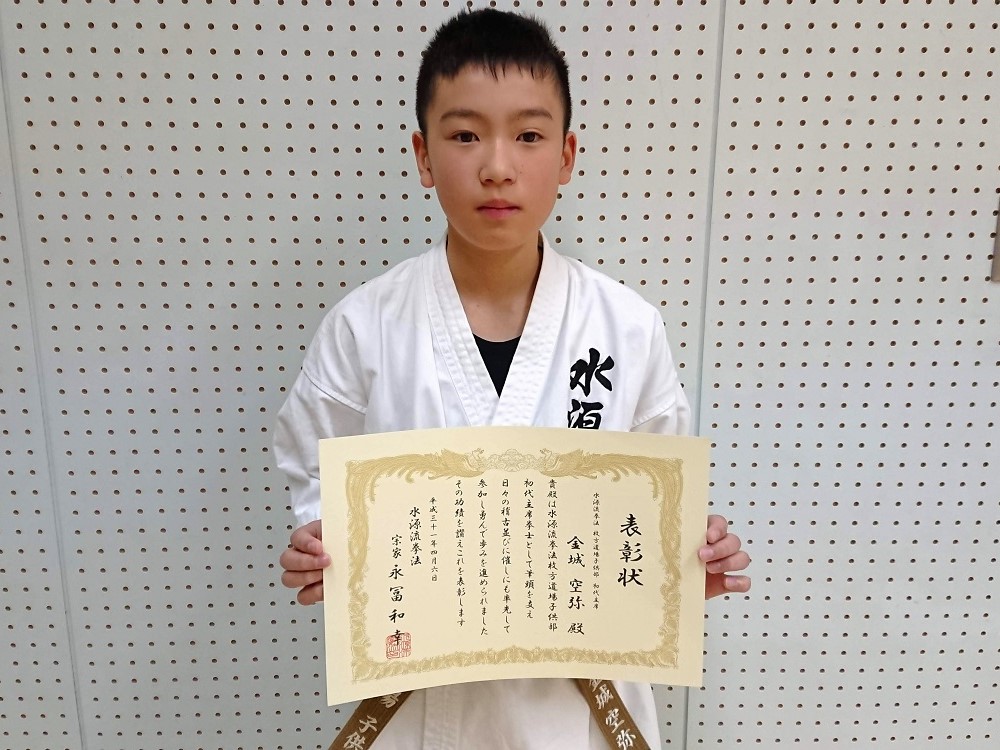 水源
表彰状
水源流拳法 枚方道場子供部 初代主席
金城 空弥 殿
貴殿は水源流拳法枚方道場子供部
初代主席拳士として筆頭を支え
日々の稽古並びに催しにも率先して
参加し勇んで歩みを進められました
その功績を讃えこれを表彰します
平成三十一年四月六日
水源流拳法
宗家 永冨 和幸
子供
金城 空弥